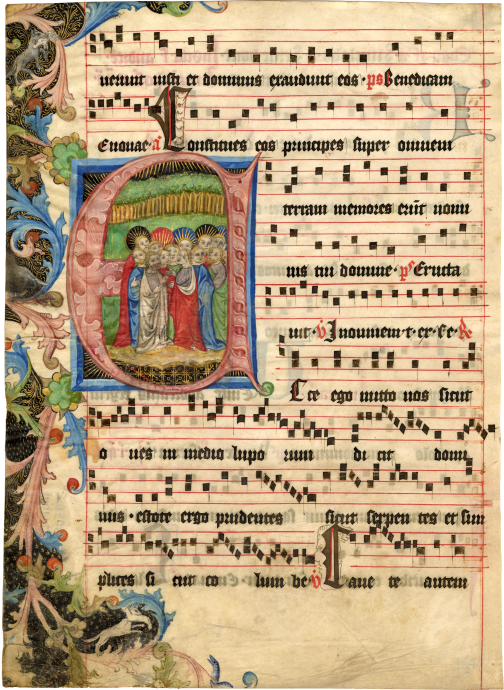 uerunt iusti et dominus exaudiuit eos · ps Benedicam
Euouae · a Constitues eos principes super omnem
terram memores erūt nomi
nis tui domine · ps Eructa
uit · v In omnem · t · ex · se · R
Ecce ego mitto uos sicut
o ues in medio lupo rum di cit domi
nus · estote ergo prudentes sicut serpen tes et sim
plices si cut co lum be v Caue te autem